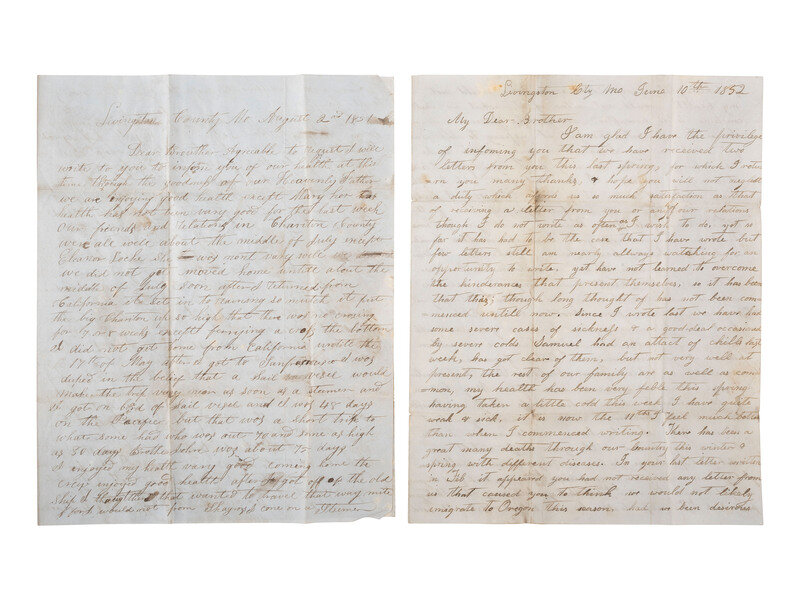 Livingston County Mo August 2nd 1851
Dear Brouther Agreable to request I
write to you to inform you of our health at this
time though the goodness of our Heavenly Father
we are enjoying good health except Mary her
health has not been vary good for the last week
Our friends and relations in Chariton County
were all well about the middle of July except
Eleanor Locke She was
we did not get moved home untill about the
middle of July soon after I returned from
California it Set in to raining so mutch it put
the big Chariton up so high that there was no crosing
for 7 or 8 weeks except the bottom
I did not get home from California untill the
17th of May after I got to Sanfrancisco I was
in the belief that a Sail vesel would
make the trip vary near as soon as a steamer and
I got on of Sail vesel and I was 48 days
on the Pacific but that was a short trip to
what some had who was out 70 and some as high
as 80 days Brother John was about 70 days
I enjoyed my health vary good coming home the
crew enjoyed good health after I got of of the old
ship I that wanted to travel that way
from I come on a Steamer
Livingston Cty Mo June 10th 1852
My Dear Brother
I am glad I have the privilege
of infoming you that we have received two
letters from you this last spring, for which I retu-
rn you many thanks, & hope you will not neglect
a duty which affords us so much satisfaction as that
of receiving a letter from you or any of our relations
though I do not write as often as I wish to do, yet so
far it has had to be the case that I have wrote but
few letters still am nearly allways watching for an
oppertunity to write, yet have not learned to overcome
the hinderances that present themselves, so it has been
that this; though long thought of has not been com-
menced untill now, Since I wrote last we have had
some severe cases of sickness & a good deal occasioned
by severe colds Samuel had an attact of chills last
week, has got clear of them, but not very well at
present, the rest of our family are as well as com-
mon, my health has been very feble this spring
having taken a little cold this week I have quite
weak & sick, it is now the 11th I feel much better
than when I commenced writing. There has been a
great many deaths through our country this winter &
spring with different diseases. In your last letter written
in Feb it appeared you had not received any letter from
us that caused you to think we would not likely
imigrate to Oregon this season, had we been desirious